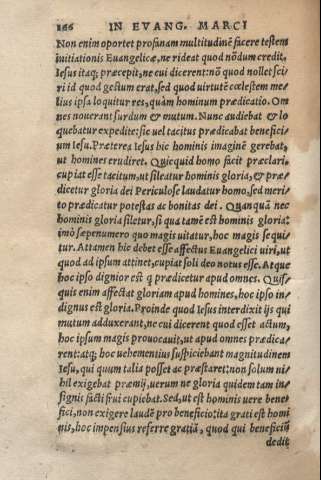 166 IN EVANG. MARCI
Non enim oportet profanam multitudinẽ facere testem
initiationis Euangelicæ, ne rideat quod nõdum credit.
Iesus itaq; præcepit, ne cui dicerent: nõ quod nollet sci/
ri id quod gestum erat, sed quod uirtutẽ cœlestem me/
lius ipsa loquitur res, quàm hominum prædicatio. Om
nes nouerant surdum & mutum. Nunc audiebat & lo
quebatur expedite: sic uel tacitus prædicabat beneficiũ
um Iesu. Præterea Iesus hic hominis imaginẽ gerebat,
ut homines erudiret. Quicquid homo facit præclari,
cupiat esse tacitum, ut sileatur hominis gloria, & præ/
dicetur gloria dei Periculose laudatur homo, sed meri/
to prædicatur potestas ac bonitas dei. Quanquã nec
hominis gloria siletur, si qua tamẽ est hominis gloria:
imò sæpenumero quo magis uitatur, hoc magis sequi
tur. Attamen hic debet esse affectus Euangelici uiri, ut
quod ad ipsum attinet, cupiat soli deo notus esse. Atque
hoc ipso dignior est q prædicetur apud omnes. Quis/
quis enim affectat gloriam apud homines, hoc ipso in/
dignus est gloria. Proinde quod Iesus interdixit ijs qui
mutum adduxerant, ne cui dicerent quod esset actum,
hoc ipsum magis prouocauit, ut apud omnes prædica/
rent: atq; hoc uehementius suspiciebant magnitudinem
Iesu, qui quum talia posset ac præstaret: non solum ni/
hil exigebat præmij, uerum ne gloria quidem tam in/
signis facti frui cupiebat. Sed, ut est hominis uere bene/
fici, non exigere laudẽ pro beneficio: ita grati est homi
nis, hoc impensius referre gratiã, quod qui beneficiũ
dedit